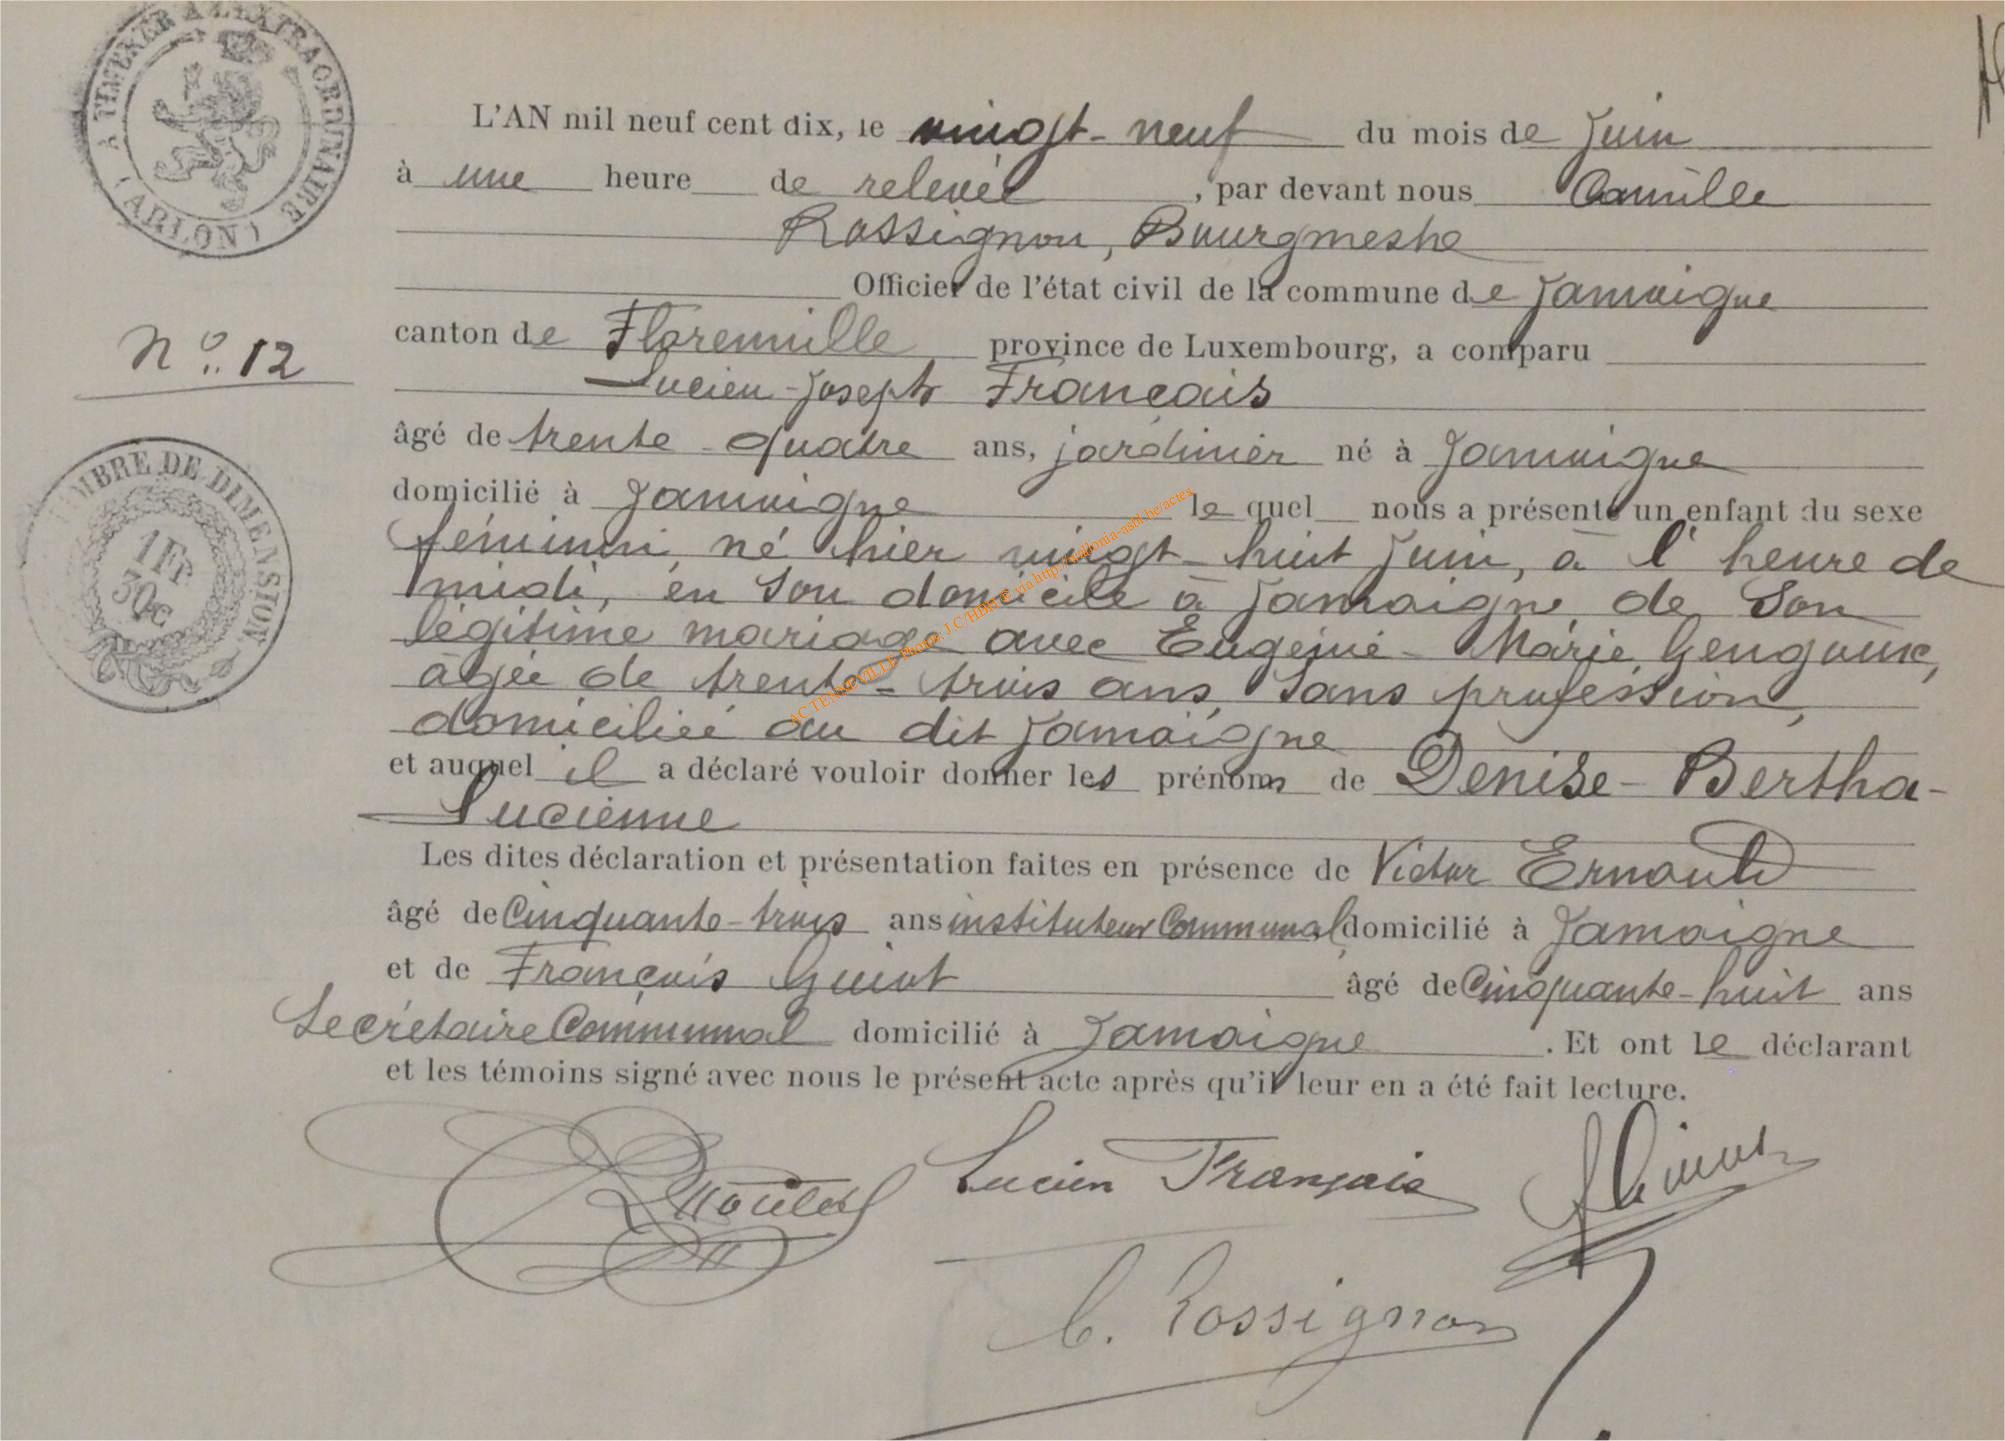 À TIMBRER À L'EXTRAORDINAIRE
(ARLON)
L'AN mil neuf cent dix, le vingt-neuf du mois de Juin
à une heure de relevée, par devant nous Camille
Rossignon, Bourgmestre
Officier de l'état civil de la commune de Jamoigne
N° 12
canton de Florenville province de Luxembourg, a comparu
Lucien-Joseph Français
âgé de trente-quatre ans, jardinier né à Jamoigne
domicilié à Jamoigne lequel nous a présenté un enfant du sexe
TIMBRE DE DIMENSION
1 Fr
30c
féminin, né hier vingt-huit Juin, à l'heure de
midi, en son domicile à Jamoigne, de son
légitime mariage avec Eugénie-Marie Gengoux,
âgée de trente-trois ans, sans profession,
domiciliée au dit Jamoigne
et auquel il a déclaré vouloir donner les prénoms de Denise-Bertha-
Lucienne
Les dites déclaration et présentation faites en présence de Victor Ernould
âgé de Cinquante-trois ans instituteur Communal domicilié à Jamoigne
et de François Guiot âgé de Cinquante-huit ans
Secrétaire Communal domicilié à Jamoigne. Et ont le déclarant
et les témoins signé avec nous le présent acte après qu'il leur en a été fait lecture.
Lucien Français
C. Rossignon